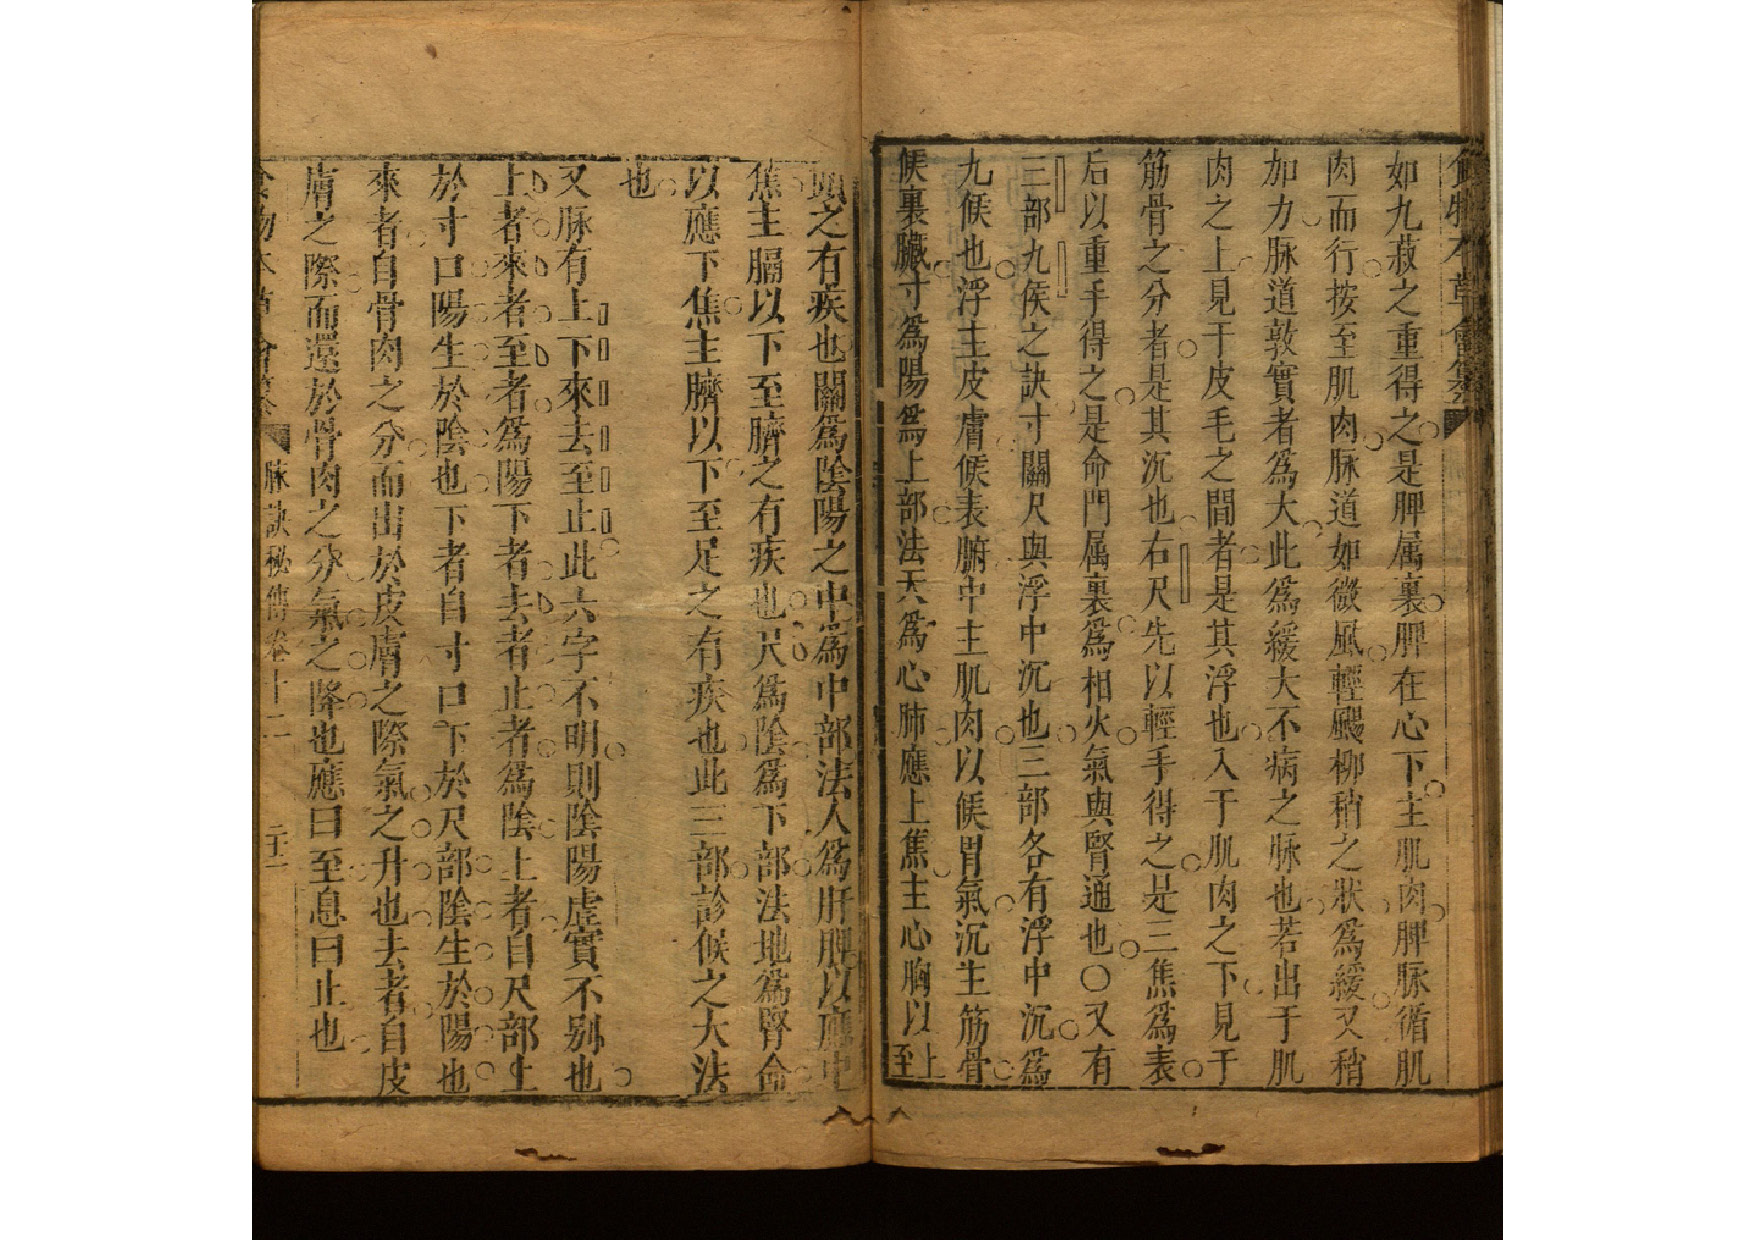 食物本草會纂
如九菽之重得之是脾属裏脾在心下主肌肉脾脉循肌
肉而行按至肌肉脉道如微風輕颺柳稍之狀爲緩又稍
加力脉道敦實者爲大此爲緩大不病之脉也若出于肌
肉之上見于皮毛之間者是其浮也入于肌肉之下見于
筋骨之分者是其沉也右尺先以輕手得之是三焦爲表
后以重手得之是命門属裏爲相火氣與腎通也〇又有
三部九侯之訣寸關尺與浮中沉也三部各有浮中沉爲
九候也浮主皮膚候表腑中主肌肉以候胃氣沉主筋骨
候裏臟寸爲陽爲上部法天爲心肺應上焦主心胸以上至
頭之有疾也關爲陰陽之中爲中部法人爲肝脾以應中
焦主膈以下至臍之有疾也尺爲陰爲下部法地爲腎命
以應下焦主臍以下至足之有疾也此三部診候之大法
也
又脉有上下來去至止此六字不明則陰陽虚實不别也
上者來者至者爲陽下者去者止者爲陰上者自尺部上
於寸口陽生於陰也下者自寸口下於尺部陰生於陽也
來者自骨肉之分而出於皮膚之際氣之升也去者自皮
膚之際而還於骨肉之分氣之降也應曰至息曰止也
食物本草會纂 脉訣秘傳卷十二